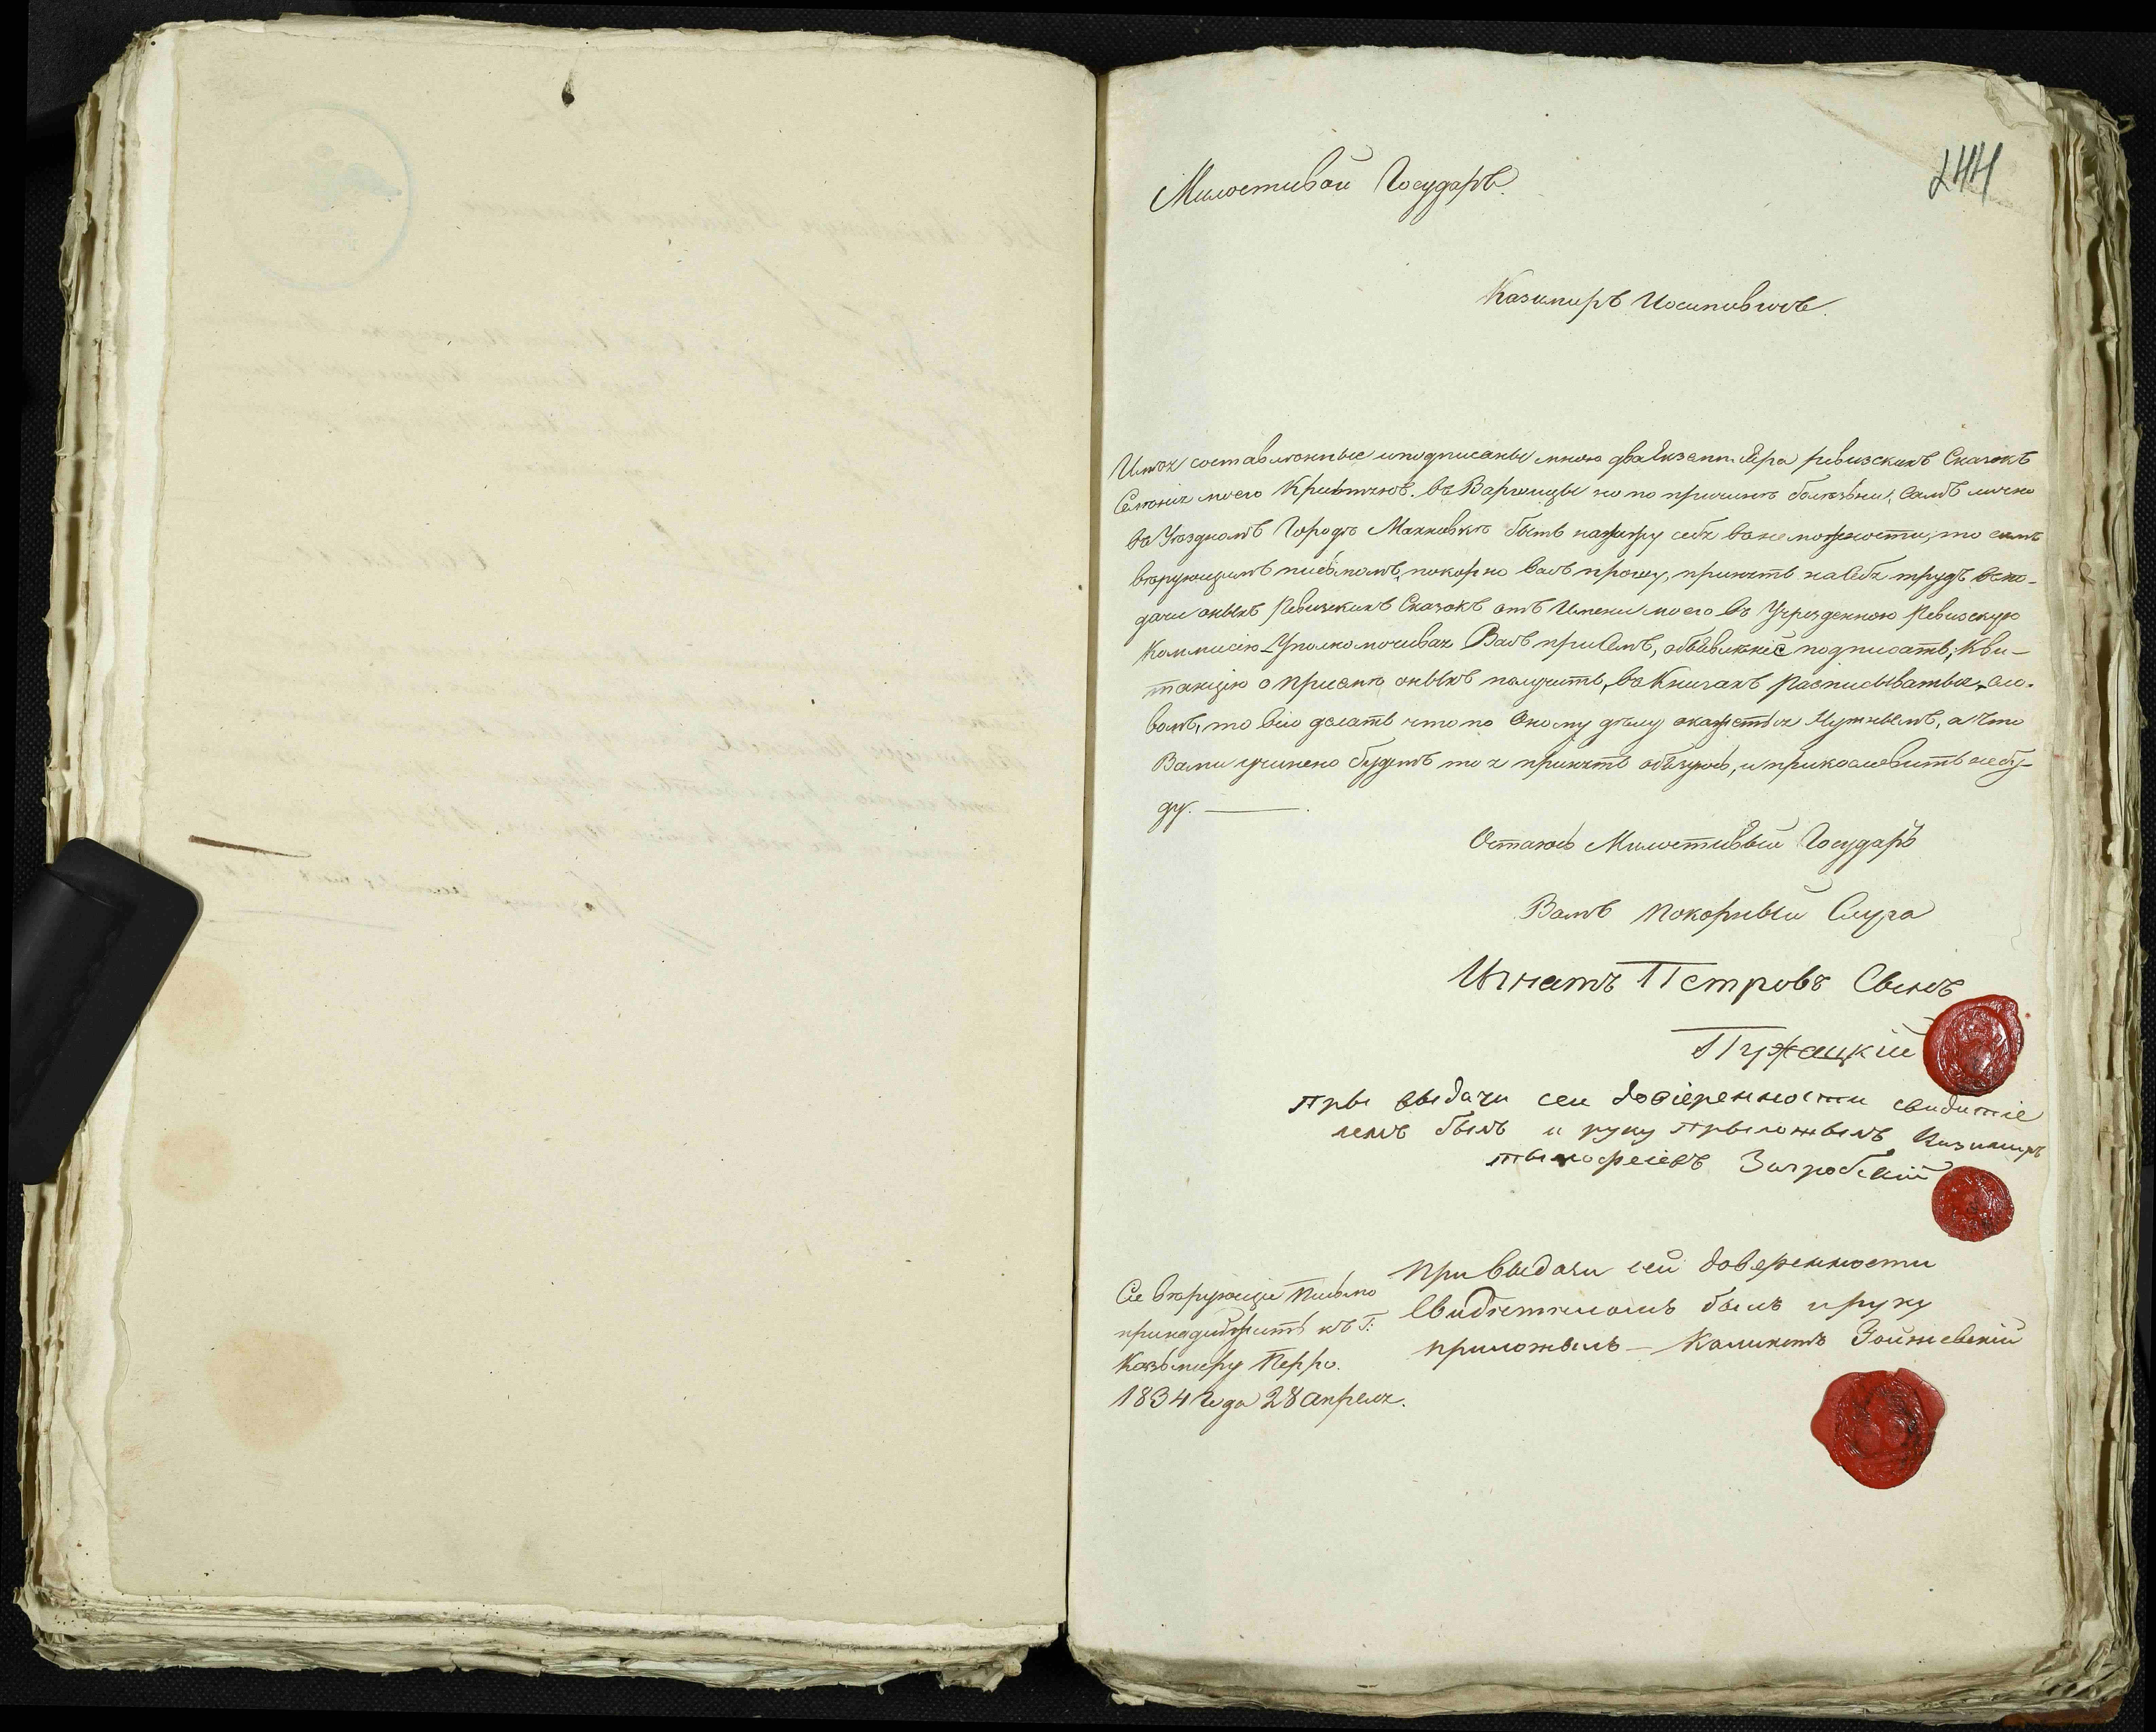 244
Милостивой Государь
Казимиръ Иосиповичъ.
Имѣя составлѣнные и подписаны мною два Екземпляра ревизскихъ Сказокъ
Селѣнія моего въ Варшицы но по причинѣ болѣзни, самъ лично
въ Уѣздномъ Городѣ Махновкѣ быть нахожу себя въ невозможности; то симъ
вѣрующимъ письмомъ, покорно Васъ прошу, принять на Себя трудъ въ по-
дачи оныхъ Ревизскихъ Сказокъ отъ Имени моего въ Учрежденную Ревизскую
Коммисію Уполномочивая Васъ при семъ, объявленіе подписать; Кви-
танцію о приемѣ оныхъ получить, въ Книгахъ Расписыватьсе, сло-
вомъ, то всіо делать что по Оному дѣлу окажется Нужнымъ, а что
Вами учинено будетъ то я принять обязуюсь, и прикословить не бу-
ду.
Остаюсь Милостивый Государь
Вамъ покорный Слуга
Игнатъ Петровъ Сынъ
Пужацкій
пры выдачи сеи довіеренности свидитіе
лемъ былъ и руку прыложылъ Казимиръ
тымофеіевъ Загробскій
при выдачи сей доверенности
Свидѣтѣломъ былъ и руку
приложылъ – Каликстъ
Сіе вѣрующіе Письмо
принадлѣжитъ къ Г:
Казымеру Перро.
1834 Года 28 апреля.